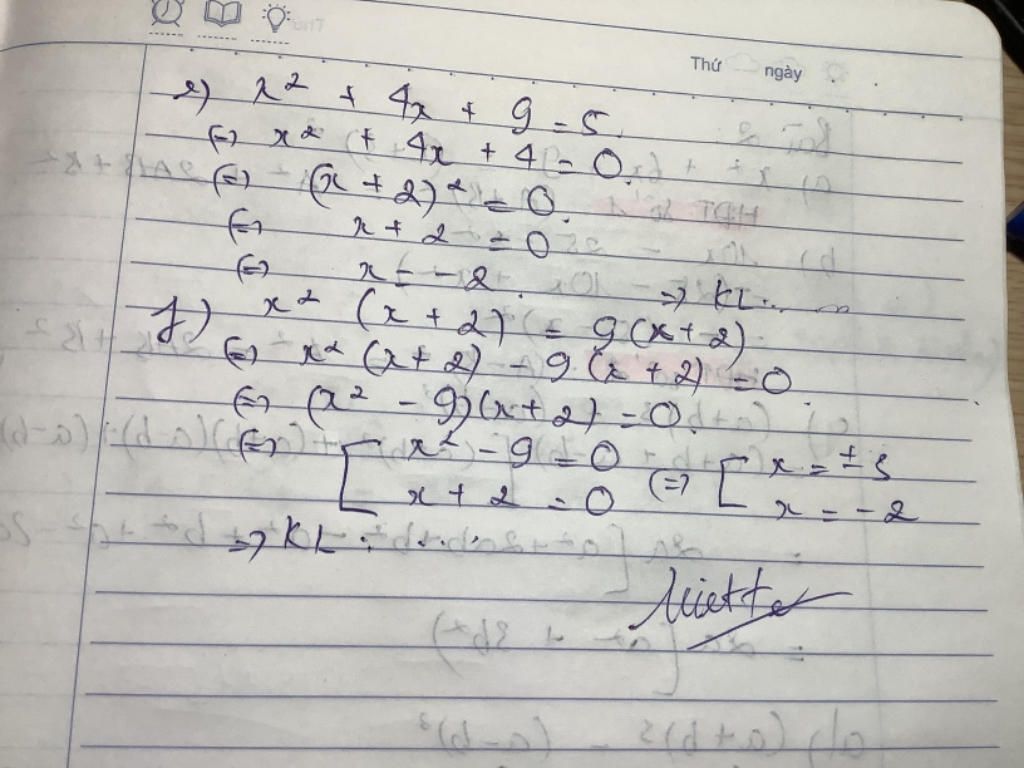 Thứ ngày
e) x² + 4x + 9 = 5.
(=) x² + 4x + 4 = 0.
(=) (x + 2)² = 0.
(=) x + 2 = 0
(=) x = -2. => KL: ...
f) x² (x + 2) = 9(x + 2)
(=) x² (x + 2) - 9 (x + 2) = 0
(=) (x² - 9)(x + 2) = 0.
(=) [ x² - 9 = 0 (=) [ x = ± 3
x + 2 = 0 x = -2
=> KL: ....